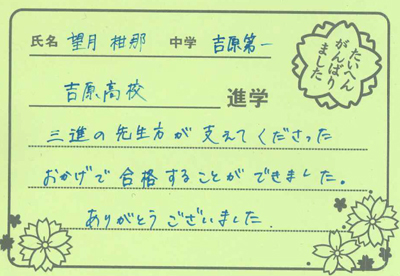 氏名 望月 柑那 中学 吉原第一
たいへん
がんばり
ました
吉原高校 進学
三進の先生方が支えてくださった
おかげで合格することができました。
ありがとうございました